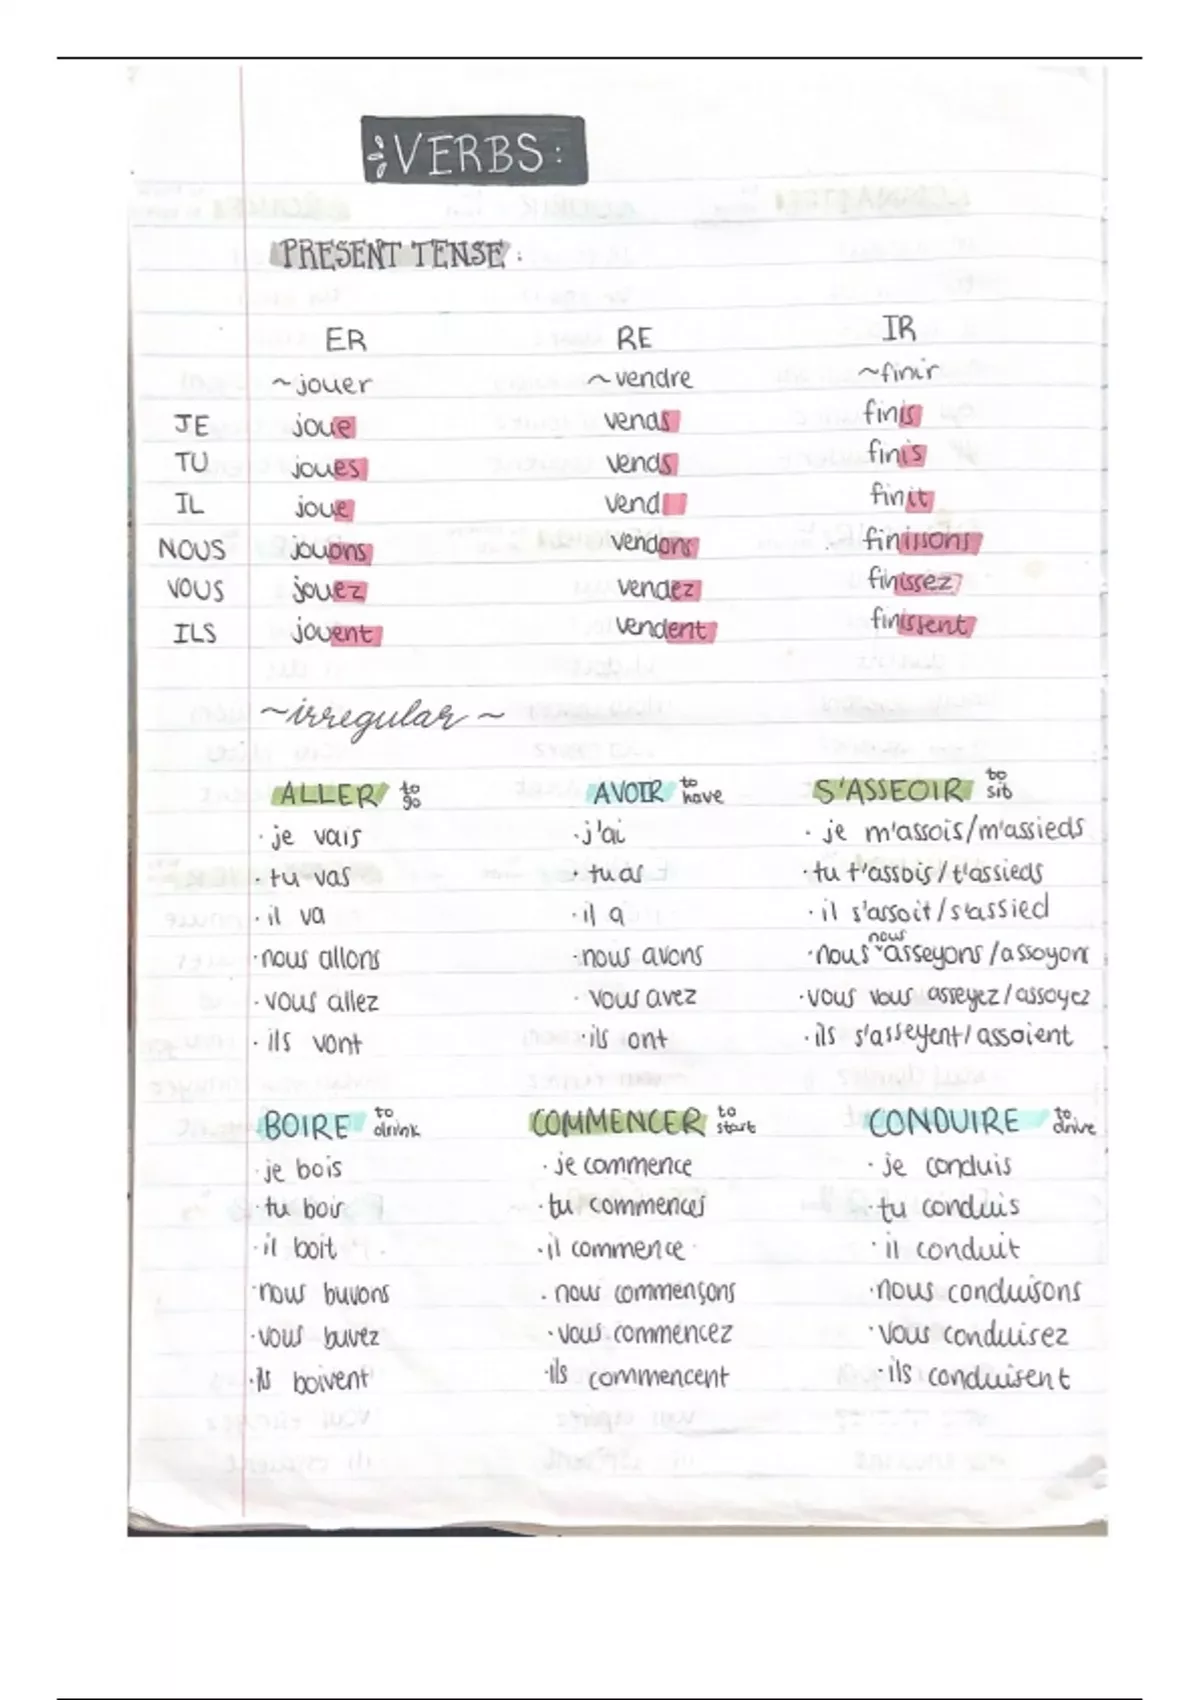 VERBS:
PRESENT TENSE:
ER RE IR
~jouer ~vendre ~finir
JE joue vends finis
TU joues vends finis
IL joue vend finit
NOUS jouons vendons finissons
VOUS jouez vendez finissez
ILS jouent vendent finissent
~irregular~
ALLER to go AVOIR to have S'ASSEOIR to sit
· je vais · j'ai · je m'assois/m'assieds
· tu vas · tu as · tu t'assois/t'assieds
· il va · il a · il s'assoit/s'assied
· nous allons · nous avons · nous nous asseyons/assoyons
· vous allez · vous avez · vous vous asseyez/assoyez
· ils vont · ils ont · ils s'asseyent/assoient
BOIRE to drink COMMENCER to start CONDUIRE to drive
· je bois · je commence · je conduis
· tu bois · tu commences · tu conduis
· il boit · il commence · il conduit
· nous buvons · nous commençons · nous conduisons
· vous buvez · vous commencez · vous conduisez
· ils boivent · ils commencent · ils conduisent